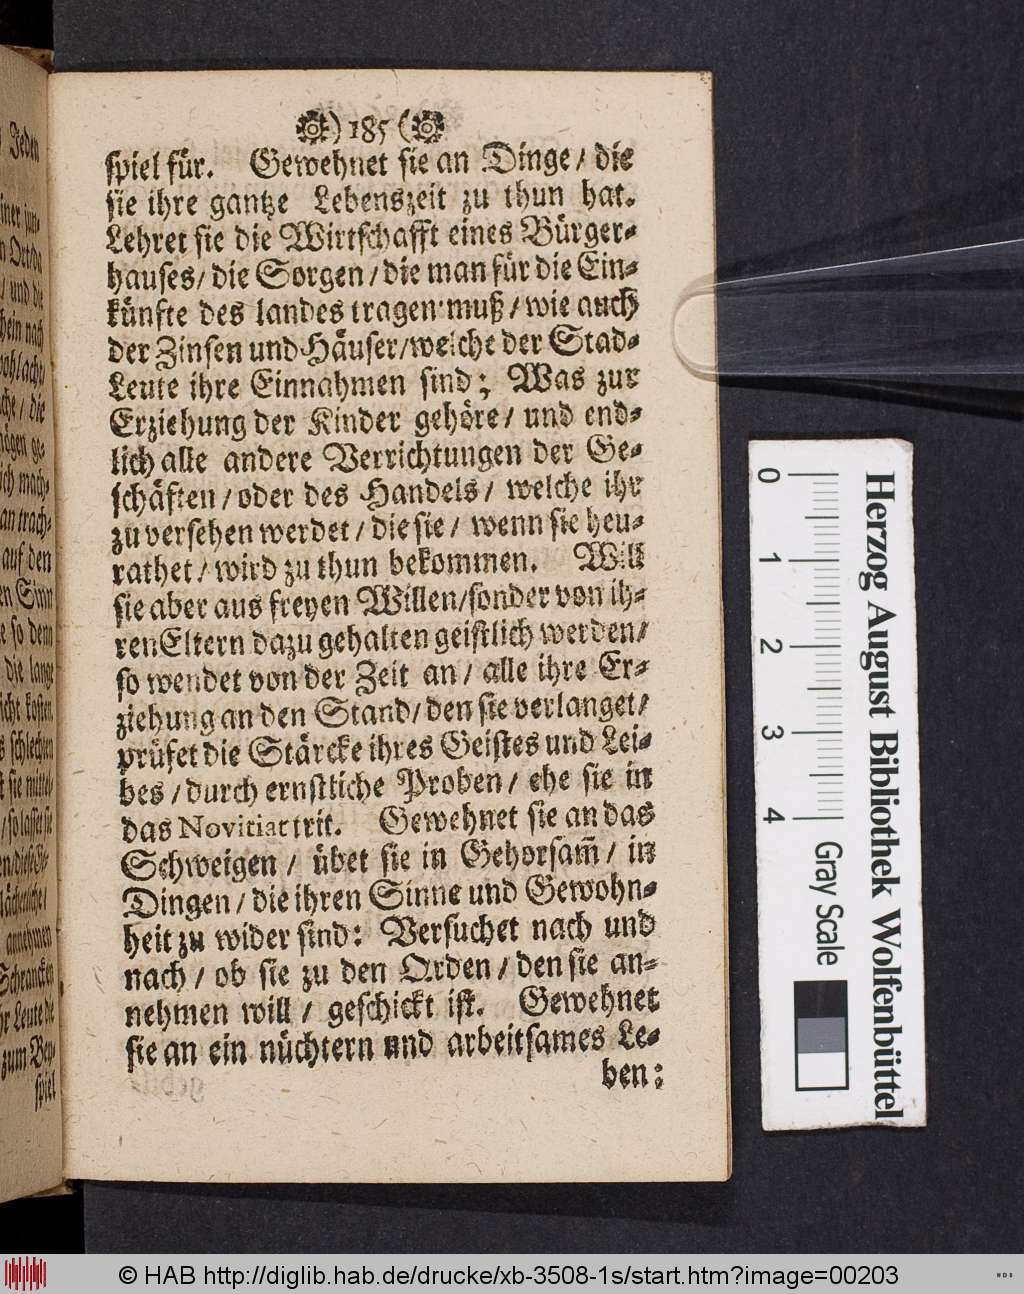 ) 185 (
spiel für. Gewehnet sie an Dinge / die
sie ihre gantze Lebenszeit zu thun hat.
Lehret sie die Wirtschafft eines Bürger-
hauses / die Sorgen / die man für die Ein-
künfte des landes tragen muß / wie auch
der Zinsen und Häuser / welche der Stad-
Leute ihre Einnahmen sind; Was zur
Erziehung der Kinder gehöre / und end-
lich alle andere Verrichtungen der Ge-
schäften / oder des Handels / welche ihr
zu versehen werdet / die sie / wenn sie heu-
rathet / wird zu thun bekommen. Will
sie aber aus freyen Willen / sonder von ih-
ren Eltern dazu gehalten geistlich werden /
so wendet von der Zeit an / alle ihre Er-
ziehung an den Stand / den sie verlanget /
prüfet die Stärcke ihres Geistes und Lei-
bes / durch ernstliche Proben / ehe sie in
das Novitiat trit. Gewehnet sie an das
Schweigen / übet sie in Gehorsam̃ / in
Dingen / die ihren Sinne und Gewohn-
heit zu wider sind: Versuchet nach und
nach / ob sie zu den Orden / den sie an-
nehmen will / geschickt ist. Gewehnet
sie an ein nüchtern und arbeitsames Le-
ben:
Jeden
und die
hein nach
/ die
mögen ge-
ich mach-
an trach-
auf den
en Sinn
e so denn
die lange
icht kosten
s schlechten
t sie mittel-
/ so lasset sie
annehmen
Schrancken
hr Leute die
zum Bey-
spiel
Herzog August Bibliothek Wolfenbüttel
0 1 2 3 4
Gray Scale
© HAB http://diglib.hab.de/drucke/xb-3508-1s/start.htm?image=00203